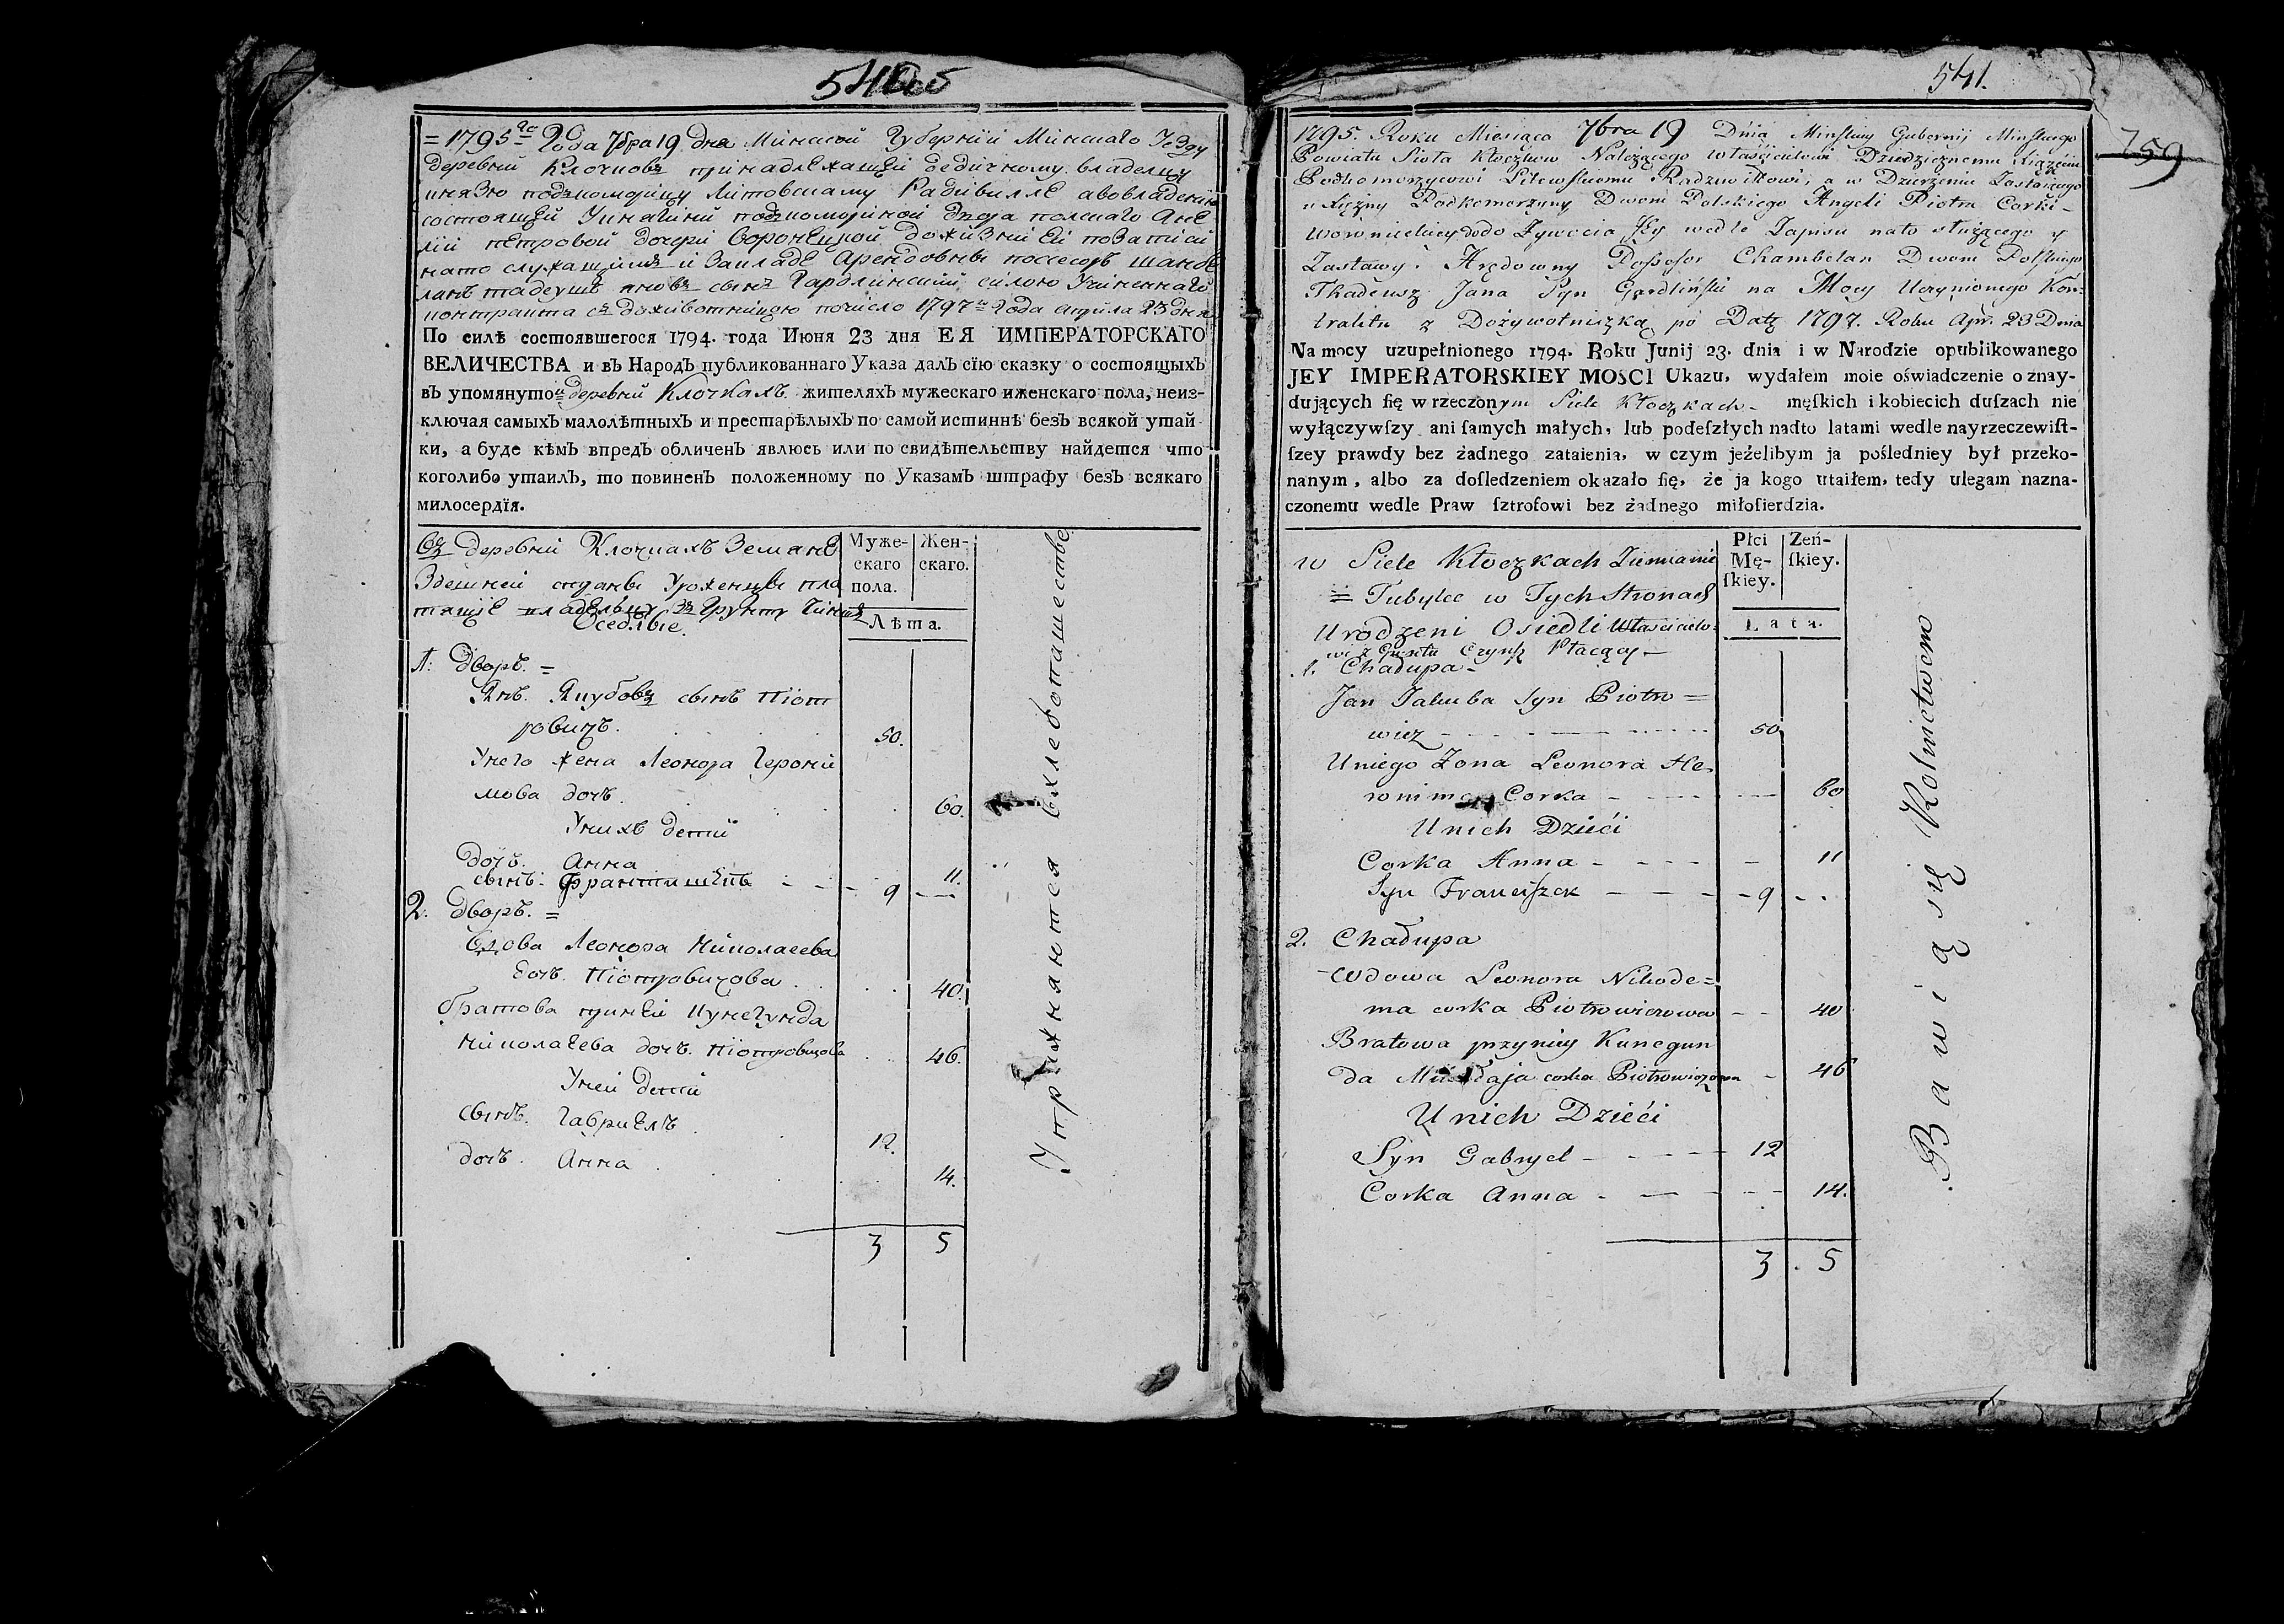 540об
= 1795го Года 7бра 19 дня Минской Губернiи Минскаго Уезду
деревни Клочковъ принадлежащей дедичному владелцу
князю подкоморицу Литовскому Радивиллѣ авовладении
состоящей Укнягини подкоморiной двора полскаго Анѣ
лiи петровой дочери Воронецкой дожизнiи ей позаписи
нато служащимъ и Закладѣ Арендовны поссесоръ шамбе
ланъ тадеушъ яновъ сынъ Гарδлинскiй силою Учiненнаго
контракта съ доживотнiцею почисло 1797го Года априля 23 дня
По силѣ состоявшегося 1794. года Июня 23 дня ЕЯ ИМПЕРАТОРСКАГО
ВЕЛИЧЕСТВА и въ Народъ публикованнаго Указа далъ сїю сказку о состоящыхъ
въ упомянутой деревни Клочкахъ жителяхъ мужескаго иженскаго пола, неиз-
ключая самыхъ малолѣтныхъ и престарѣлыхъ по самой истиннѣ безъ всякой утай
ки, а буде кѣмъ впредъ обличенъ явлюсь или по свидѣтельству найдется что
коголибо утаилъ, то повиненъ положенному по Указамъ штрафу безъ всякаго
милосердїя.
Въ деревни Клочкахъ Земянѣ
Здешней страны Уроженцы пла
тящiе владѣльцу за Грунту Чиншъ
Оседлые.
Муже- Жен-
скаго скаго.
пола.
Лѣта.
1. Дворъ. =
Янъ. Якубовъ сынъ Пiот
ровичъ. 50.
Унего жена Леонора Герони
мова дочь. 60.
Унихъ дети
Дочь. Анна 11.
сынъ. Францишекъ - - - 9 - -
2. Дворъ. =
Вдова Леонора Николаева
дочь. Пiотровичова 40.
братова приней Кунегунда
Николаева дочь. Пiотровичова 46.
Уней дети
сынъ. Габриелъ 12.
дочь. Анна 14.
3 5
Упражняются вхлебопашестве
541.
759
1795. Roku Miesiąca 7bra 19 Dnia Minskiey Gubernij Minskiego
Powiatu Sioła Kłoczkow Należącego właścicielowi Dziedzicznemu Xiążęciu
Podkomorzycowi Litewskiemu Radziwiłłowi, a w Dzierżeniu Zostaiącego
u Xiężny Podkomorzyny Dworu Polskiego Angeli Piotra Corki-
Woronieckiey dodo Żywocia Jey wedle Zapisu nato służącego y
Zastawy. Arędowny Possesor Chambelan Dworu Polskiego
Thadeusz Jana Syn Gardliński na Mocy Uczynionego Kon=
traktu z Dożywotniczką po Datę 1797. Roku Apr. 23 Dnia
Na mocy uzupełnionego 1794. Roku Junij 23. dnia i w Narodzie opublikowanego
JEY IMPERATORSKIEY MOSCI Ukazu, wydałem moie oświadczenie o znay-
dujących ſię w rzeczonym Siele Kłoczkach - męſkich i kobiecich duſzach nie
wyłączywſzy ani ſamych małych, lub podeſzłych nadto latami wedle nayrzeczewiſt-
ſzey prawdy bez żadnego zataienia, w czym jeżelibym ja poſledniey był przeko-
nanym, albo za doſledzeniem okazało ſię, że ja kogo utaiłem, tedy ulegam nazna-
czonemu wedle Praw ſztrofowi bez żadnego miłoſierdzia.
w Siele Kłoczkach Ziemianie
= Tubylce w Tych Stronach
Urodzeni Osiedli Właścicielo-
wi z Gruntu Czynsz Płacący -
Płci Zeń-
Mę- ſkiey.
ſkiey.
Lata.
1. Chałupa -
Jan Jakuba Syn Piotro =
wicz - - - 50
Uniego Żona Leonora He-
ronima Corka - - - 60
Unich Dzieći
Corka Anna - - - 11
Syn Franciszek - - - 9 - .
2. Chałupa
Wdowa Leonora Nikode=
ma corka Piotrowiczowa - - 40
Bratowa przyniey Kunegun
da Mikołaja corka Piotrowiczowa - 46
Unich Dzieći
Syn Gabryel - - - 12
Corka Anna - - - 14.
3 . 5
Bawią się Rolnictwem